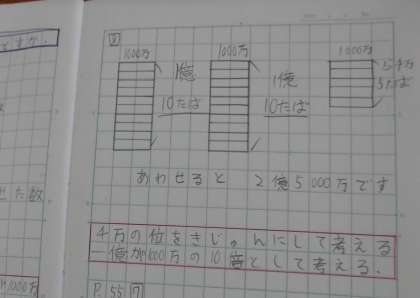 図
1000万 1000万 1000万
1億 1億 5千万
10たば 10たば 5たば
あわせると 2億5000万です
千万の位をきじゅんにして考える
億が1000万の10倍として考える。
P.55 7